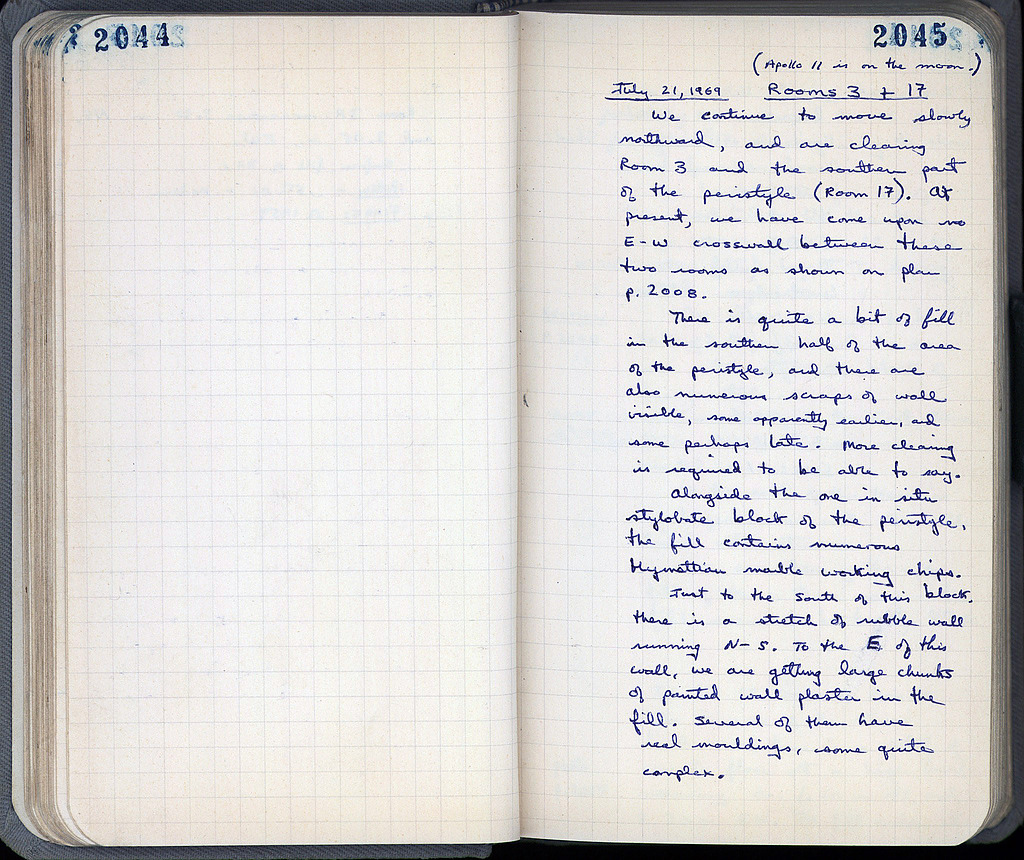 2044
2045
(Apollo 11 is on the moon.)
July 21, 1969 Rooms 3 + 17
We continue to move slowly
northward, and are clearing
Room 3 and the southern part
of the peristyle (Room 17). At
present, we have come upon no
E-W crosswall between these
two rooms as shown on plan
p. 2008.
There is quite a bit of fill
in the southern half of the area
of the peristyle, and there are
also numerous scraps of wall
visible, some apparently earlier, and
some perhaps late. More clearing
is required to be able to say.
Alongside the one in situ
stylobate block of the peristyle,
the fill contains numerous
Hymettian marble working chips.
Just to the south of this block,
there is a stretch of rubble wall
running N-S. To the E of this
wall, we are getting large chunks
of painted wall plaster in the
fill. Several of them have
real mouldings, some quite
complex.